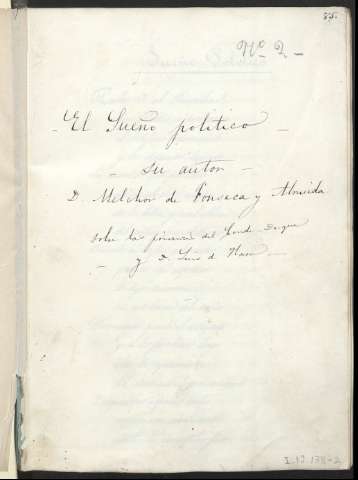 35.
Nº 2 —
- El Sueño politico -
- su autor -
D. Melchor de Fonseca y Almeida
sobre la privanza del Conde Duque
- y D. Luis de Haro -